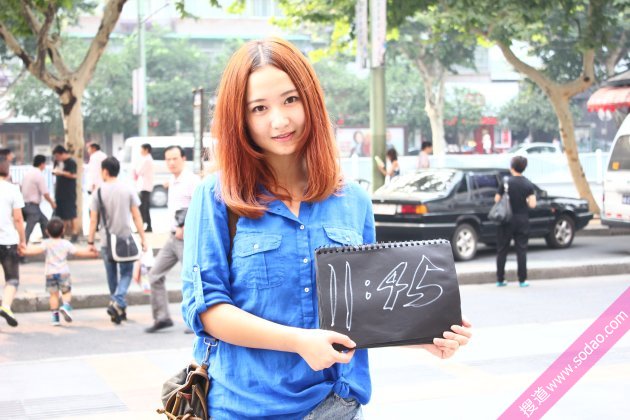 11:45
搜道 www.sodao.com